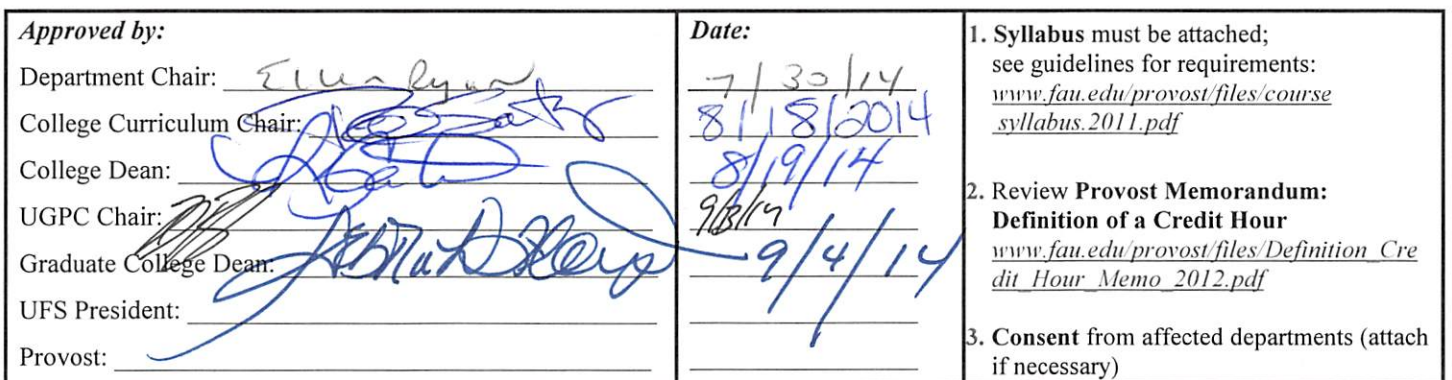 Approved by:
Department Chair: Ellen Ryan
College Curriculum Chair:
College Dean:
UGPC Chair:
Graduate College Dean:
UFS President:
Provost:
Date:
7/30/14
8/18/2014
8/19/14
9/3/14
9/4/14
1. Syllabus must be attached;
see guidelines for requirements:
www.fau.edu/provost/files/course
_syllabus.2011.pdf
2. Review Provost Memorandum:
Definition of a Credit Hour
www.fau.edu/provost/files/Definition_Cre
dit_Hour_Memo_2012.pdf
3. Consent from affected departments (attach
if necessary)